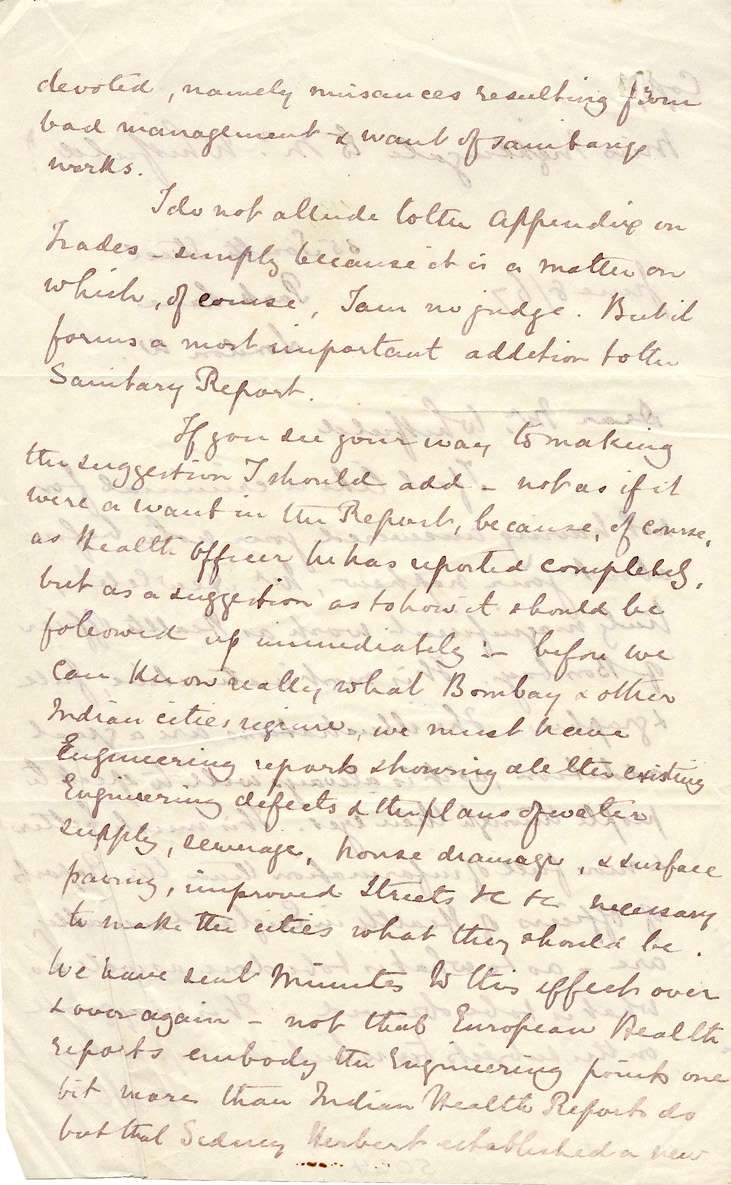 devoted, namely nuisances resulting from
bad management & want of sanitary
works.
I do not allude to the Appendix on
Trades - simply because it is a matter on
which, of course, I am no judge. But it
forms a most important addition to the
Sanitary Report.
If you see your way to making
the suggestion I should add - not as if it
were a want in the Report, because, of course,
as Health Officer he has reported completely,
but as a suggestion as to how it should be
followed up immediately :- before we
can know really what Bombay & other
Indian cities require, we must have
Engineering reports showing all the existing
Engineering defects & the plans of water
supply, sewerage, house drainage, & surface
paving, improved streets &c &c necessary
to make the cities what they should be.
We have sent Minutes to this effect over
& over again - not that European Health
reports embody the Engineering points one
bit more than Indian Health Reports do
but that Sidney Herbert established a new